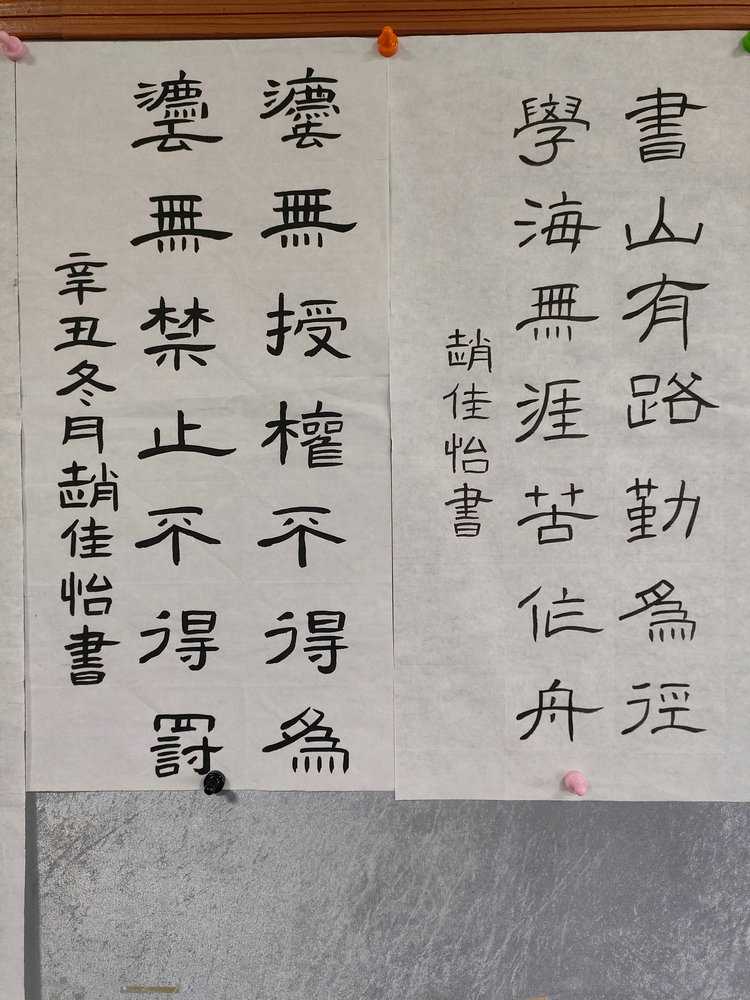 書山有路勤為徑
學海無涯苦作舟
趙佳怡書
灋無授權不得為
灋無禁止不得罰
辛丑冬月趙佳怡書